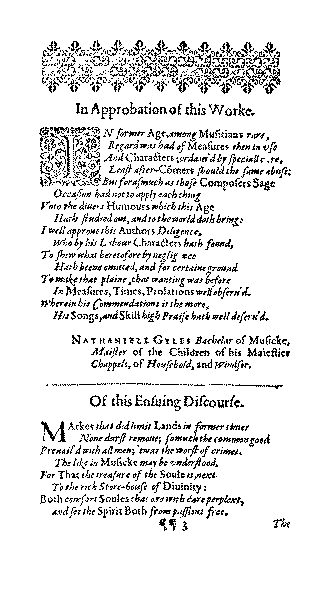 In Approbation of this Worke.
IN former Age, among Musitians rare,
Regard was had of Measures then in vse
And Characters, ordain'd by speciall c re,
Least after-Comers should the same abuse;
But forasmuch as those Composers Sage
Occasion had not to apply each thing
Vnto the diuers Humours which this Age
Hath studied out, and to the world doth bring:
I well approue this Authors Diligence,
Who by his Labour Characters hath found,
To shew what heretofore by neglig nce
Hath beene omitted, and for certaine ground
To make that plaine, that wanting was before
In Measures, Times, Prolations well obseru'd.
Wherein his Commendations is the more,
His Songs, and Skill high Praise hath well deseru'd.
NATHANIELL GYLES Bachelar of Musicke,
Maister of the Children of his Maiesties
Chappels, of Houshold, and Windsor.
Of this Ensuing Discourse.
MArkes that did limit Lands in former times
None durst remoue; so much the common good
Preuail'd with all men; 'twas the worst of crimes.
The like in Musicke may be vnderstood,
For That the treasure of the Soule is, next
To the rich Store-house of Diuinity:
Both comfort Soules that are with care perplext,
and set the Spirit Both from passions free.
¶¶ 3 The